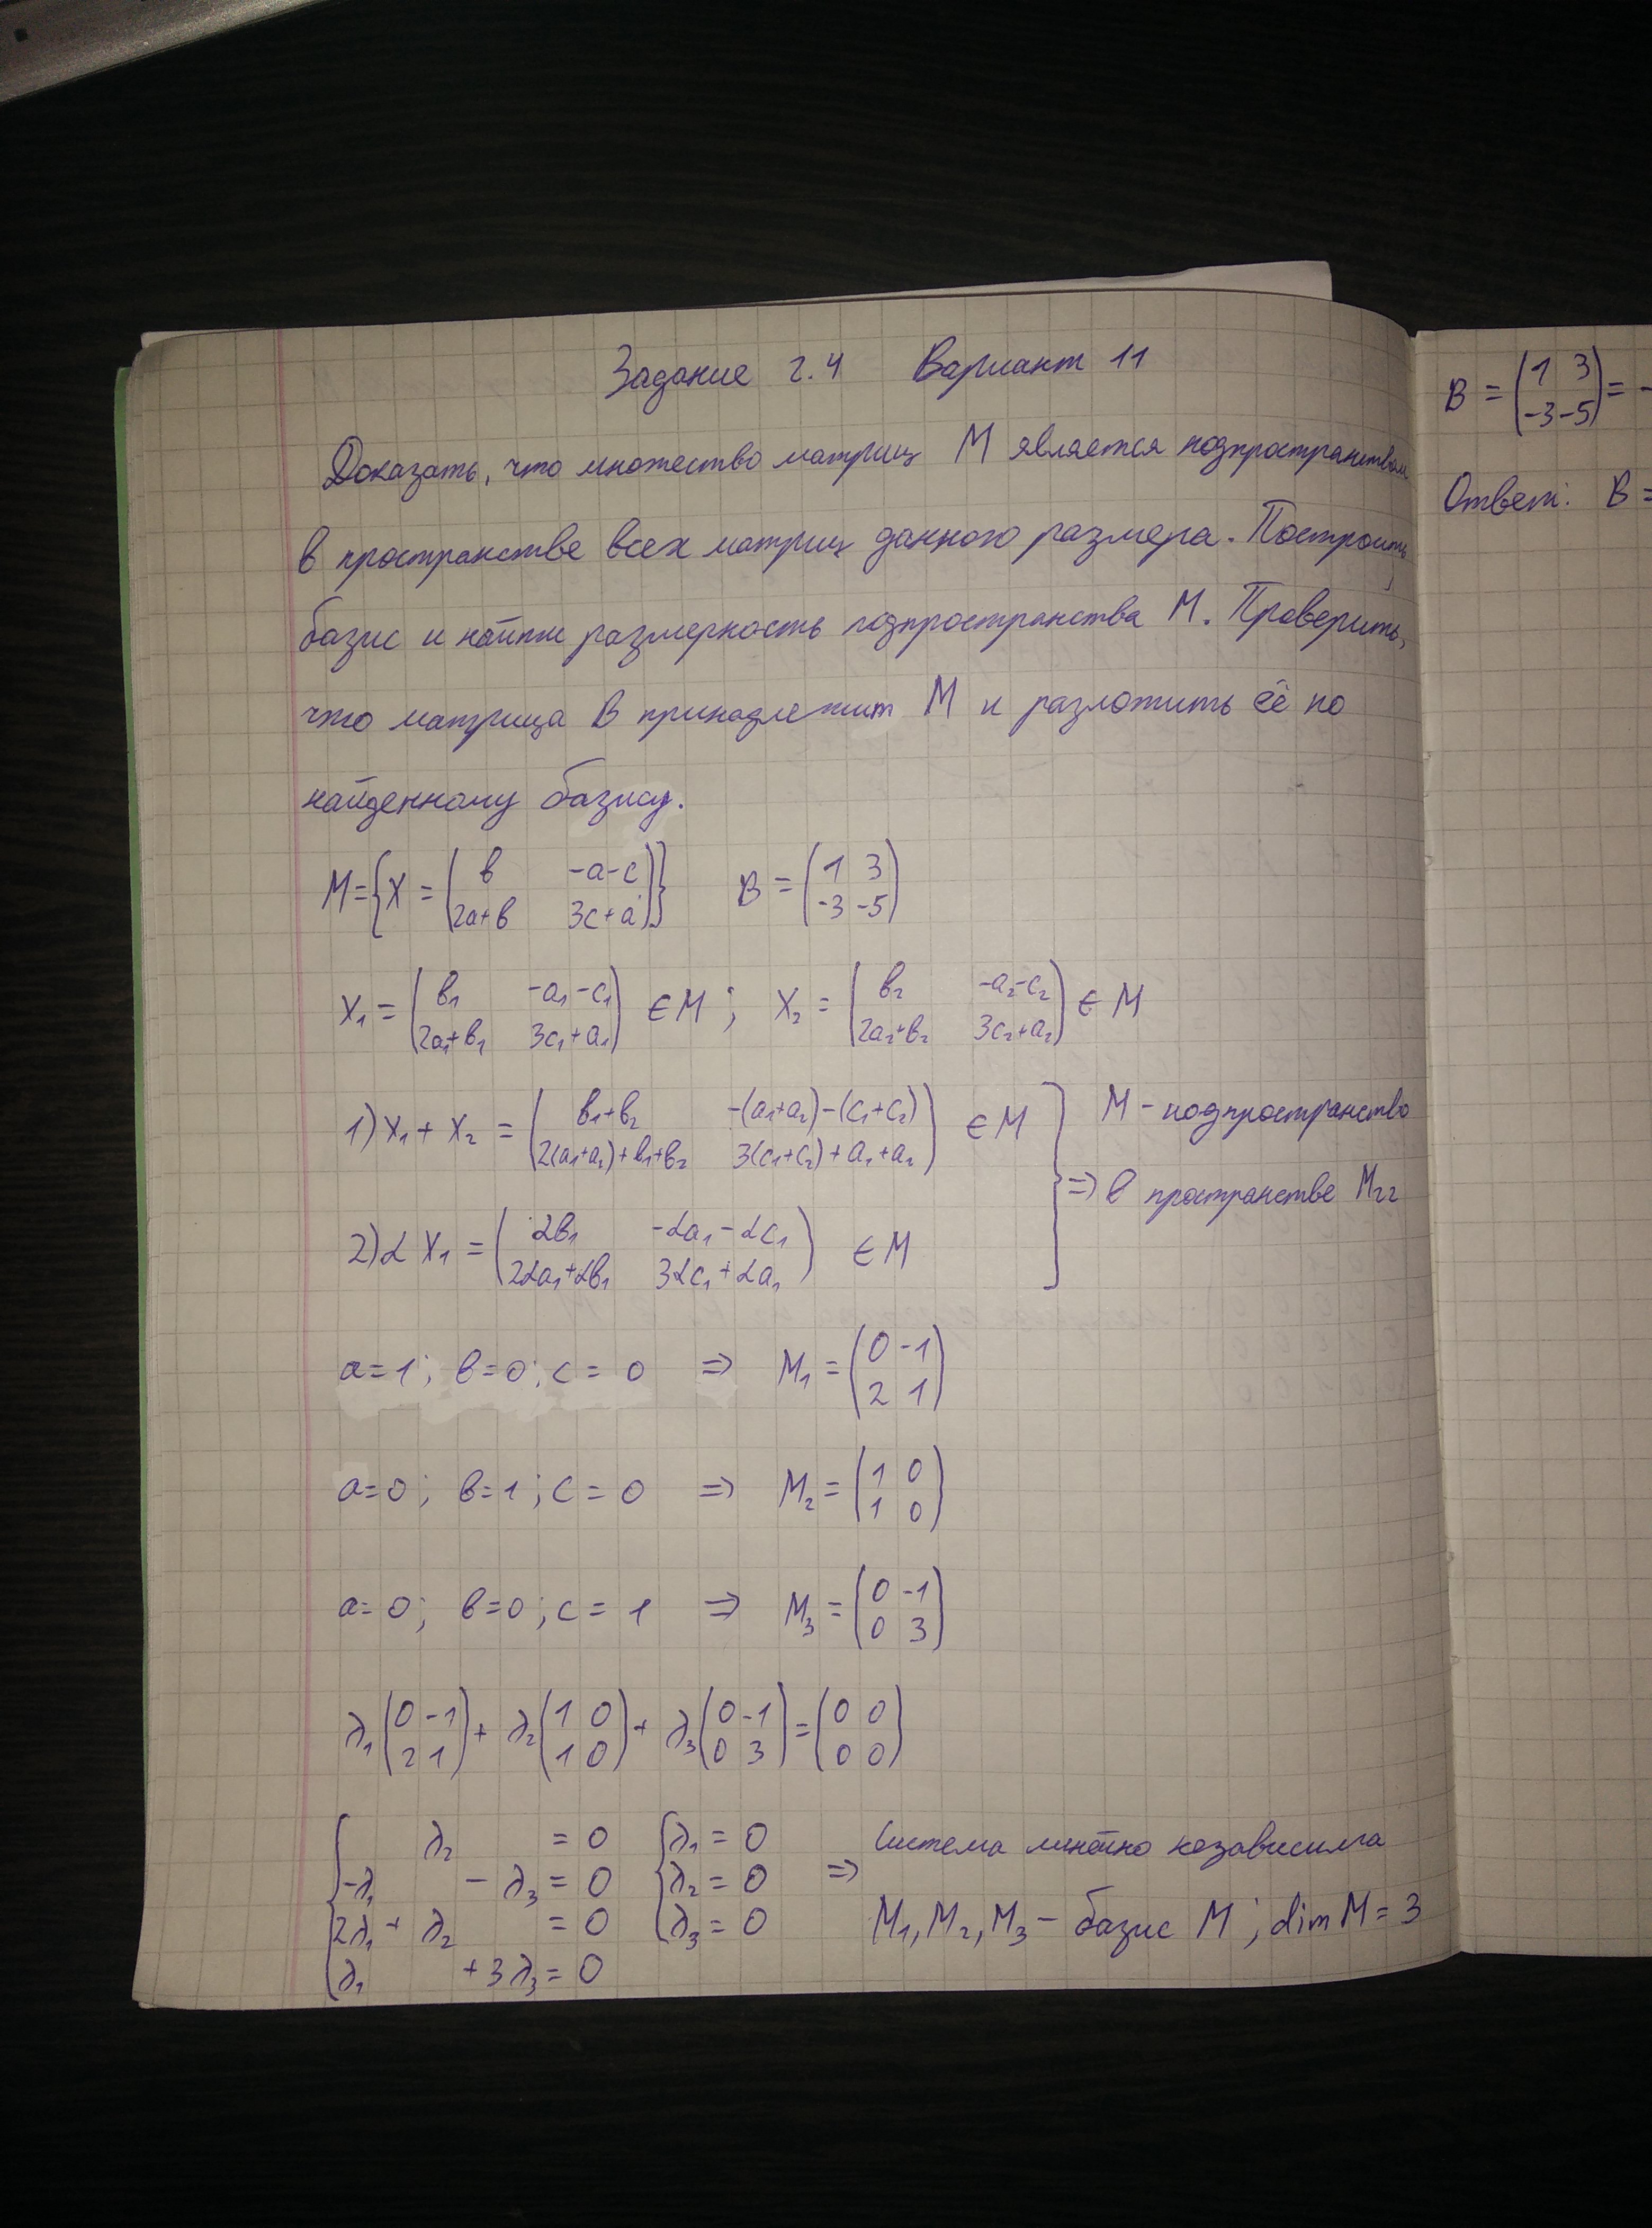 Задание 2.4 Вариант 11
Доказать, что множество матриц M является подпространством
в пространстве всех матриц данного размера. Построить
базис и найти размерность подпространства M. Проверить,
что матрица B принадлежит M и разложить её по
найденному базису.
M={X = (в -a-c; 2a+в 3c+a)} B = (1 3; -3 -5)
X₁ = (в₁ -a₁-c₁; 2a₁+в₁ 3c₁+a₁) ∈ M ; X₂ = (в₂ -a₂-c₂; 2a₂+в₂ 3c₂+a₂) ∈ M
1) X₁ + X₂ = (в₁+в₂ -(a₁+a₂)-(c₁+c₂); 2(a₁+a₂)+в₁+в₂ 3(c₁+c₂)+a₁+a₂) ∈ M
2) α X₁ = (αв₁ -αa₁-αc₁; 2αa₁+αв₁ 3αc₁+αa₁) ∈ M
⇒ M - подпространство
в пространстве M₂₂
a=1; в=0; c=0 ⇒ M₁ = (0 -1; 2 1)
a=0; в=1; c=0 ⇒ M₂ = (1 0; 1 0)
a=0; в=0; c=1 ⇒ M₃ = (0 -1; 0 3)
λ₁(0 -1; 2 1) + λ₂(1 0; 1 0) + λ₃(0 -1; 0 3) = (0 0; 0 0)
λ₂ = 0 λ₁ = 0
-λ₁ - λ₃ = 0 λ₂ = 0 ⇒ Система линейно независима
2λ₁ + λ₂ = 0 λ₃ = 0 M₁, M₂, M₃ - базис M ; dim M = 3
λ₁ + 3λ₃ = 0
B = (1 3; -3 -5) = -
Ответ: B =